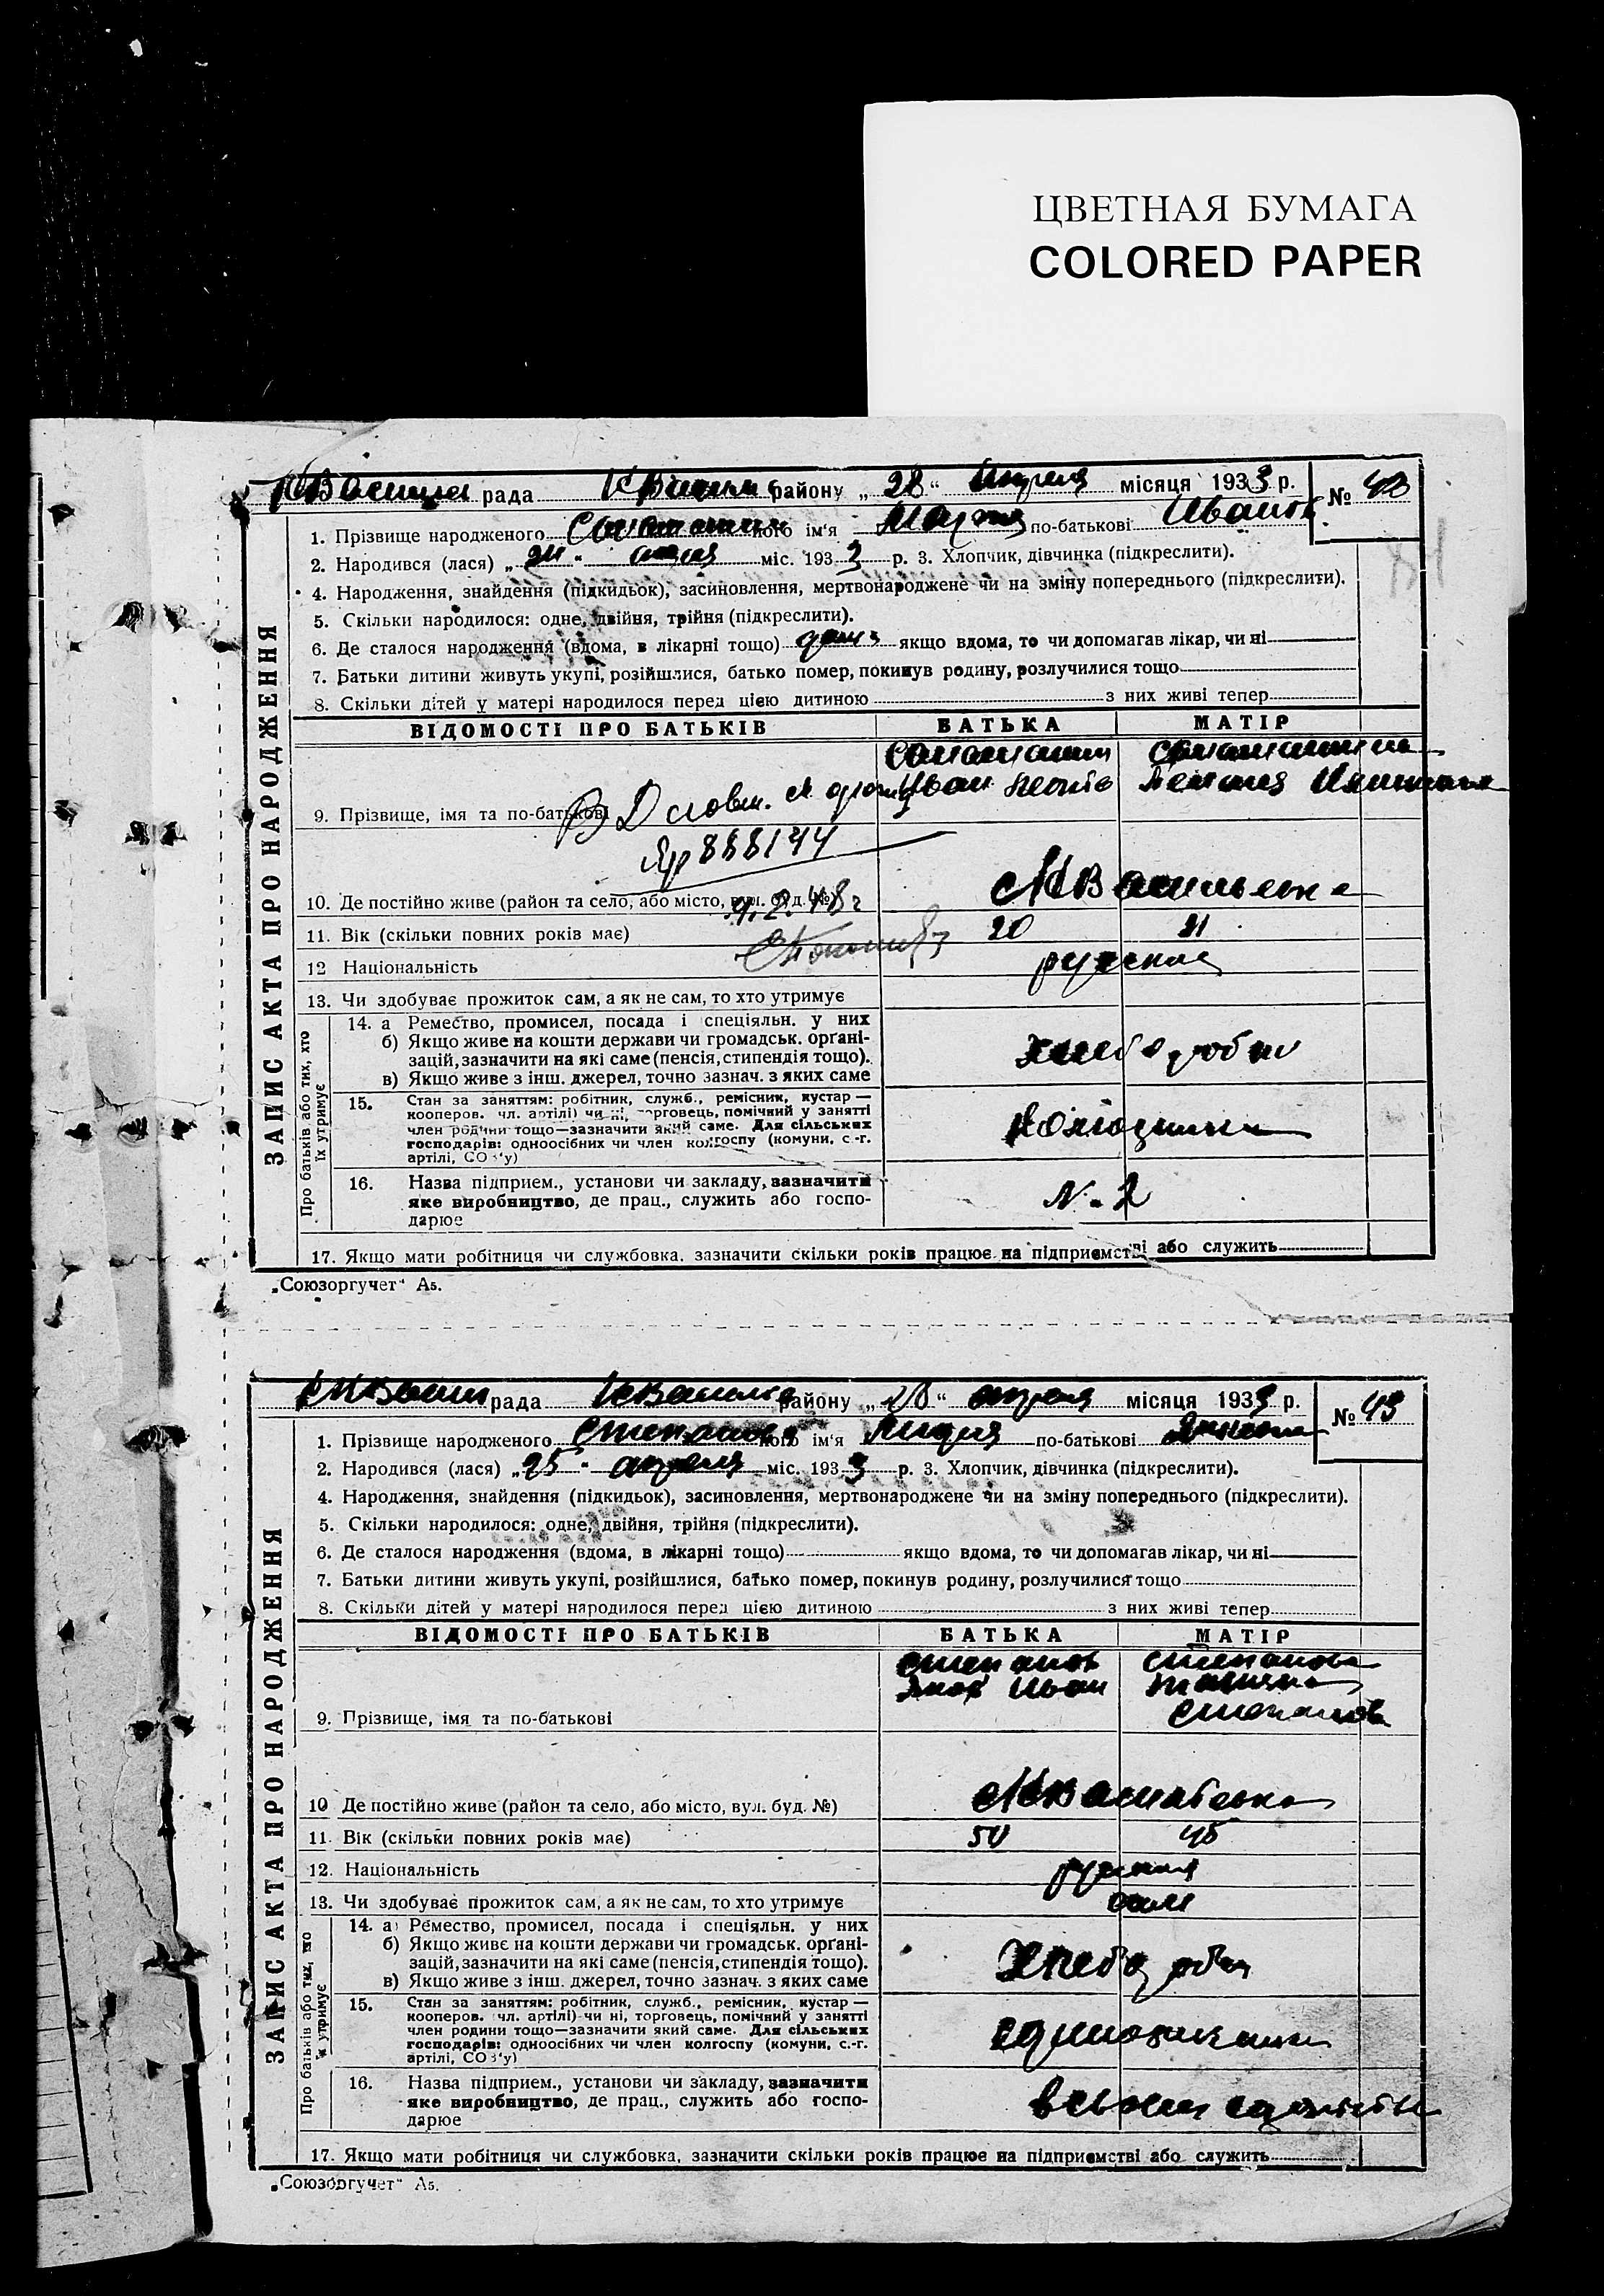 ЦВЕТНАЯ БУМАГА
COLORED PAPER
рада району „ 28 “ Апреля місяця 1933 р. № 42
1. Прізвище народженого ного ім‘я по-батькові
2. Народився (лася) „ 24 “ міс. 1933 р. 3. Хлопчик, дівчинка (підкреслити).
4. Народження, знайдення (підкидьок), засиновлення, мертвонароджене чи на зміну попереднього (підкреслити).
5. Скільки народилося: одне, двійня, трійня (підкреслити).
6. Де сталося народження (вдома, в лікарні тощо) дома якщо вдома, то чи допомагав лікар, чи ні
7. Батьки дитини живуть укупі, розійшлися, батько помер, покинув родину, розлучилися тощо
8. Скільки дітей у матері народилося перед цією дитиною з них живі тепер
ЗАПИС АКТА ПРО НАРОДЖЕННЯ
ВІДОМОСТІ ПРО БАТЬКІВ БАТЬКА МАТІР
Иван
9. Прізвище, імя та по-батькові
888144
10. Де постійно живе (район та село, або місто, вул. буд. №)
11. Вік (скільки повних років має) 20 21
12 Національність русские
13. Чи здобуває прожиток сам, а як не сам, то хто утримує
Про батьків або тих, хто їх утримує
14. а Ремество, промисел, посада і спеціяльн. у них
б) Якщо живе на кошти держави чи громадськ. орґані-
зацій, зазначити на які саме (пенсія, стипендія тощо).
в) Якщо живе з інш. джерел, точно зазнач. з яких саме
15. Стан за заняттям: робітник, служб., ремісник, кустар —
кооперов. чл. артілі) чи ні, торговець, помічний у занятті
член родини тощо—зазначити який саме. Для сільських
господарів: одноосібних чи член колгоспу (комуни, с.-г.
артілі, СОЗ‘у)
16. Назва підприєм., установи чи закладу, зазначити
яке виробництво, де прац., служить або госпо-
дарює
N-2
17. Якщо мати робітниця чи службовка, зазначити скільки років працює на підприємстві або служить
„Союзоргучет“ А5.
рада району „ 28 “ апреля місяця 1933 р. № 43
1. Прізвище народженого Степанова ного ім‘я Лидия по-батькові
2. Народився (лася) „ 25 “ апреля міс. 1933 р. 3. Хлопчик, дівчинка (підкреслити).
4. Народження, знайдення (підкидьок), засиновлення, мертвонароджене чи на зміну попереднього (підкреслити).
5. Скільки народилося: одне, двійня, трійня (підкреслити).
6. Де сталося народження (вдома, в лікарні тощо) якщо вдома, то чи допомагав лікар, чи ні
7. Батьки дитини живуть укупі, розійшлися, батько помер, покинув родину, розлучилися тощо
8. Скільки дітей у матері народилося перед цією дитиною з них живі тепер
ЗАПИС АКТА ПРО НАРОДЖЕННЯ
ВІДОМОСТІ ПРО БАТЬКІВ БАТЬКА МАТІР
Степанов Степанова
Яков Иван
9. Прізвище, імя та по-батькові
10 Де постійно живе (район та село, або місто, вул. буд. №)
11. Вік (скільки повних років має) 50 45
12. Національність русския
13. Чи здобуває прожиток сам, а як не сам, то хто утримує сами
Про батьків або тих, хто їх утримує
14. а) Ремество, промисел, посада і спеціяльн. у них
б) Якщо живе на кошти держави чи громадськ. орґані-
зацій, зазначити на які саме (пенсія, стипендія тощо).
в) Якщо живе з інш. джерел, точно зазнач. з яких саме
15. Стан за заняттям: робітник, служб., ремісник, кустар —
кооперов. чл. артілі) чи ні, торговець, помічний у занятті
член родини тощо—зазначити який саме. Для сільських
господарів: одноосібних чи член колгоспу (комуни, с.-г.
артілі, СОЗ‘у)
16. Назва підприєм., установи чи закладу, зазначити
яке виробництво, де прац., служить або госпо-
дарює
17. Якщо мати робітниця чи службовка, зазначити скільки років працює на підприємстві або служить
„Союзоргучет“ А5.